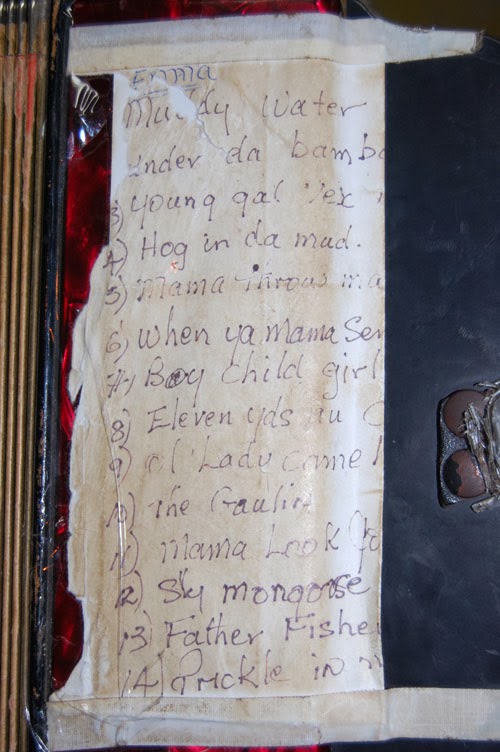 Emma
Muddy Water
under da bambo
3) young gal vex
4) Hog in da mud.
5) Mama throw ma
6) When ya mama Sen
7) Boy child girl
8) Eleven yds
9) ol' Lady came
10) The Gaulin
11) Mama Look
12) Sly mongoose
13) Father Fishe
14) Prickle in